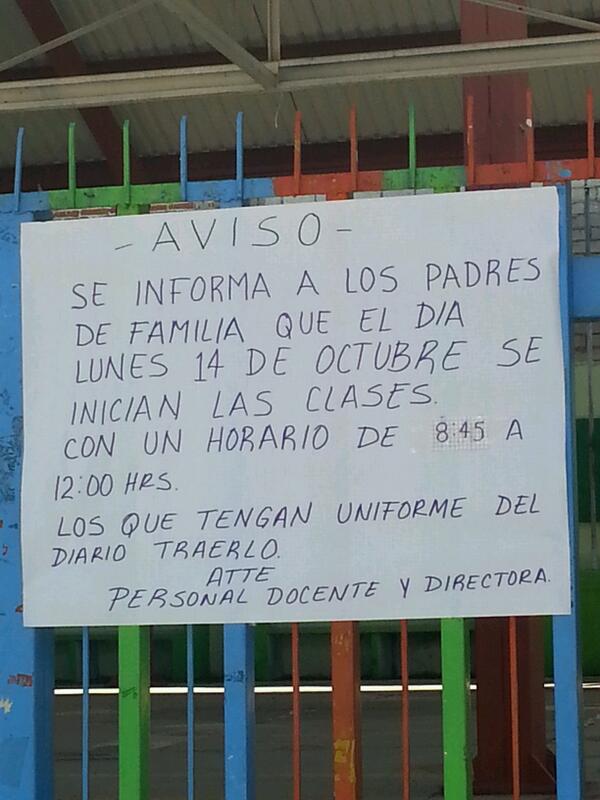 - AVISO -
SE INFORMA A LOS PADRES
DE FAMILIA QUE EL DIA
LUNES 14 DE OCTUBRE SE
INICIAN LAS CLASES.
CON UN HORARIO DE 8:45 A
12:00 HRS.
LOS QUE TENGAN UNIFORME DEL
DIARIO TRAERLO.
ATTE
PERSONAL DOCENTE Y DIRECTORA.